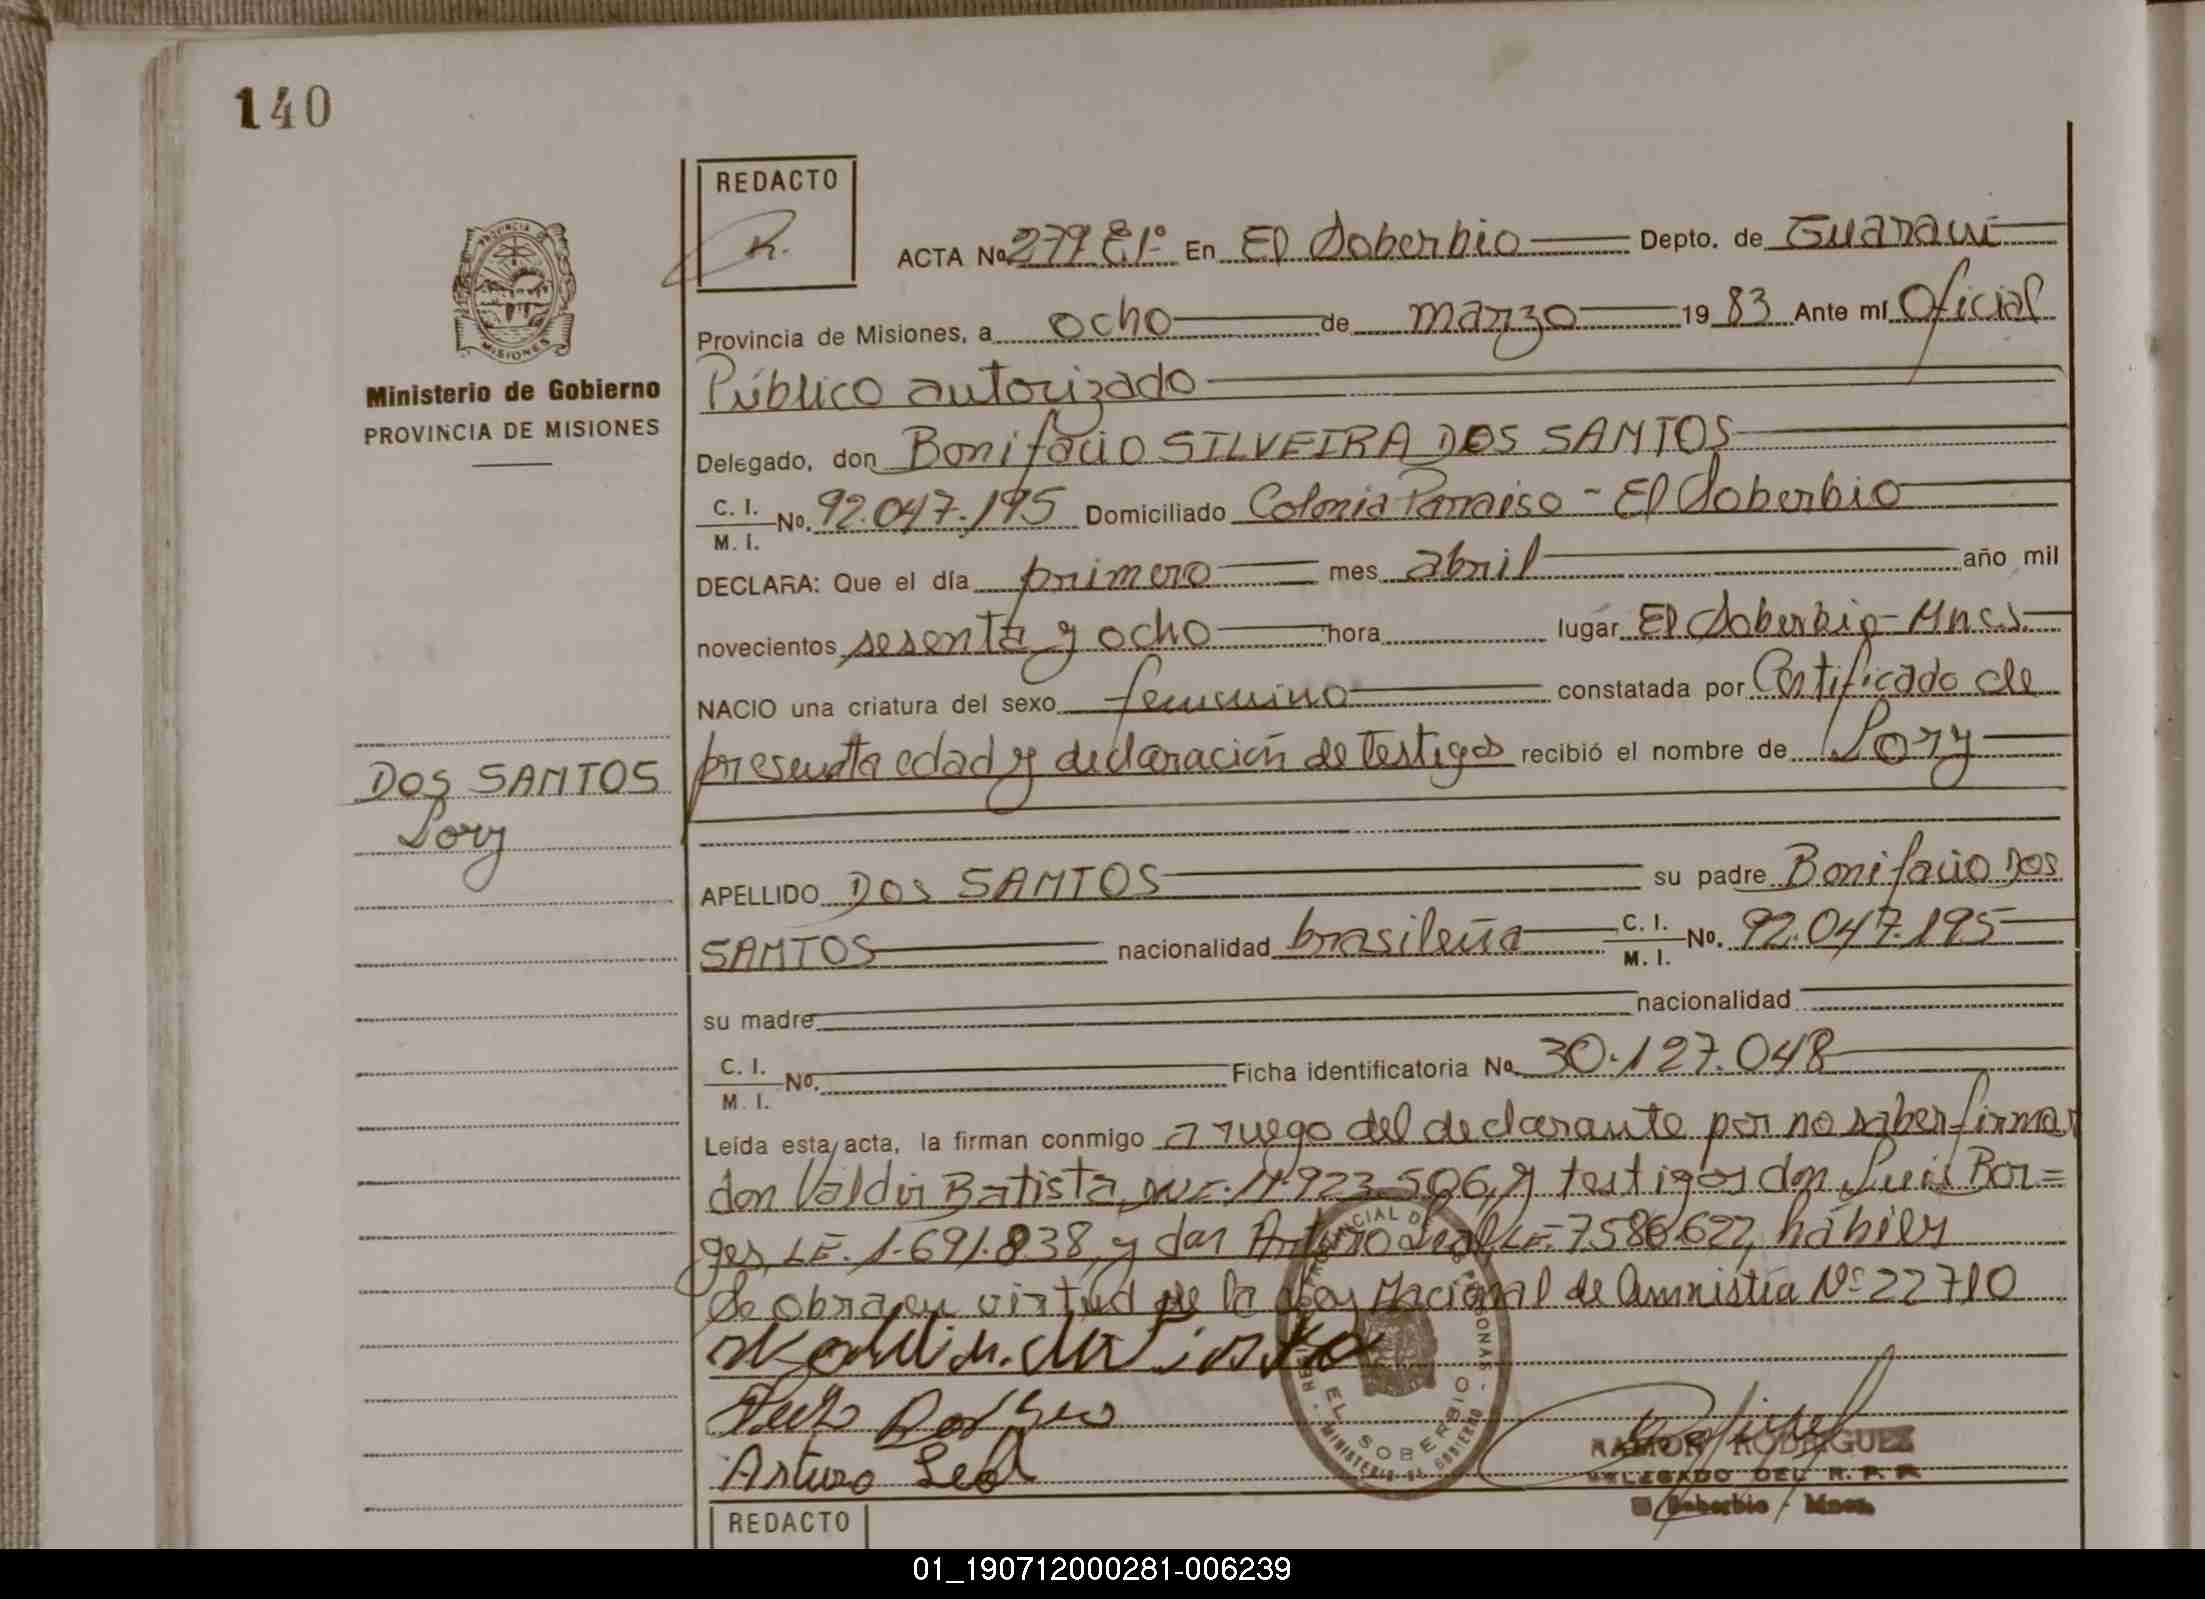 140
REDACTO
R.
ACTA No. 279 E1º En El Soberbio Depto. de Guarani
Provincia de Misiones, a ocho de marzo 19 83 Ante mí Oficial
Ministerio de Gobierno
PROVINCIA DE MISIONES
Público autorizado
Delegado, don Bonifacio SILVEIRA DOS SANTOS
C. I. M. I. No. 92.047.195 Domiciliado Colonia Parraiso - El Soberbio
DECLARA: Que el día primero mes abril año mil
novecientos sesenta y ocho hora lugar El Soberbio - Mnes.
NACIO una criatura del sexo femenino constatada por Certificado de
presunta edad y declaración de testigos recibió el nombre de Lory
DOS SANTOS
Lory
APELLIDO DOS SANTOS su padre Bonifacio DOS
SANTOS nacionalidad brasileña C. I. M. I. No. 92.047.195
su madre nacionalidad
C. I. M. I. No. Ficha identificatoria No. 30.127.048
Leída esta acta, la firman conmigo a ruego del declarante por no saber firmar
don Valdir Batista, 11.923.506, y testigos don Luis Bor=
ges, L.E. 1.691.838, y don Arturo Leal L.E. 7.586.622, hábiles
Se obra en virtud de la Ley Nacional de Amnistía Nº 22710
Arturo Leal
EL SOBERBIO
MINISTERIO DE GOBIERNO
RAMON RODRIGUEZ
DELEGADO DEL R. P. P.
El Soberbio - Mnes.
REDACTO
01_190712000281-006239